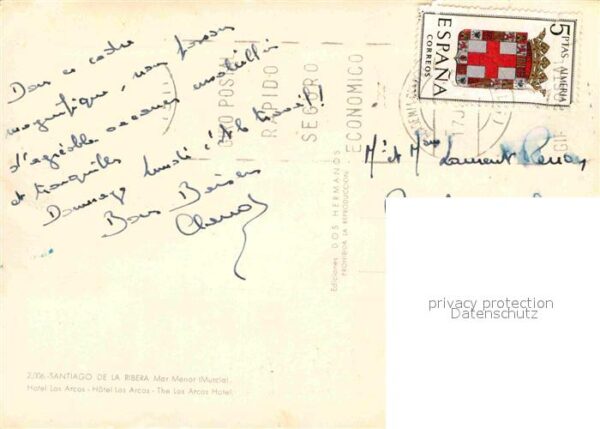 Dans ce cadre
magnifique, nous passons
d'agréables vacances
et tranquilles
Dommage lundi c'est le travail!
Bons Baisers
GIRO POSTAL
RAPIDO
SEGURO
ECONOMICO
5 PTAS. ALMERIA
ESPAÑA
CORREOS
Mr et Mme Laurent
Ediciones DOS HERMANOS
PROHIBIDA LA REPRODUCCION
privacy protection
Datenschutz
2.006.-SANTIAGO DE LA RIBERA Mar Menor (Murcia).
Hotel Los Arcos - Hôtel Los Arcos - The Los Arcos Hotel.